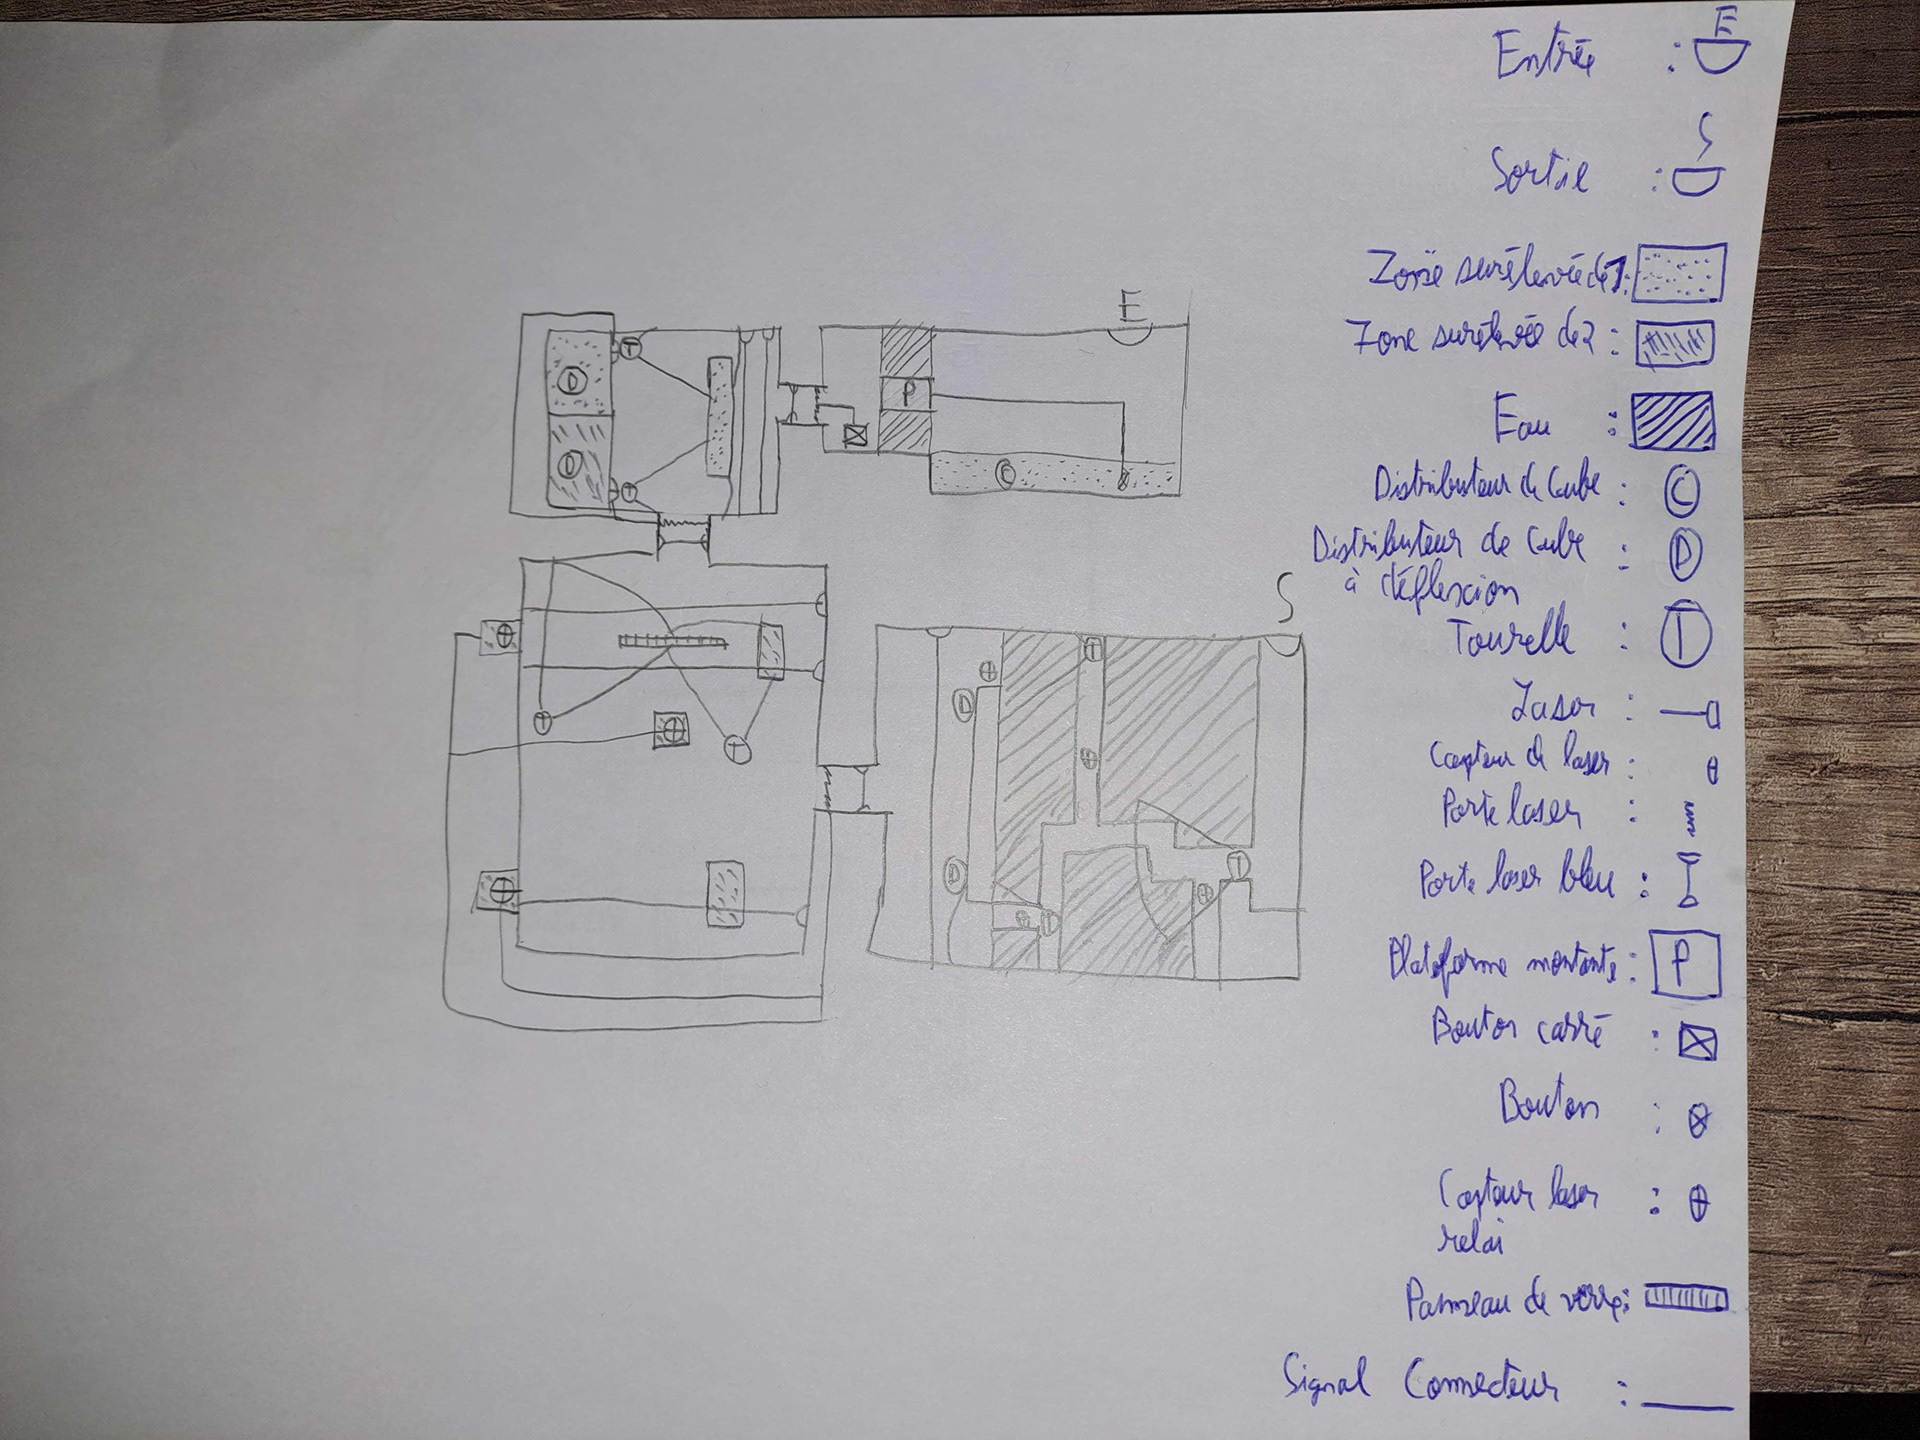 Entrée : E
Sortie : S
Zone surélevée de 1 :
Zone surélevée de 2 :
Eau :
Distributeur de Cube : C
Distributeur de Cube : D
à déflexion
Tourelle : T
Laser :
Capteur de laser :
Porte laser :
Porte laser bleu :
Plateforme montante : P
Bouton carré :
Bouton :
Capteur laser :
relai
Panneau de verre :
Signal Connecteur :
E
T
D
P
D
T
C
S
T
D
T
T
D
T
T